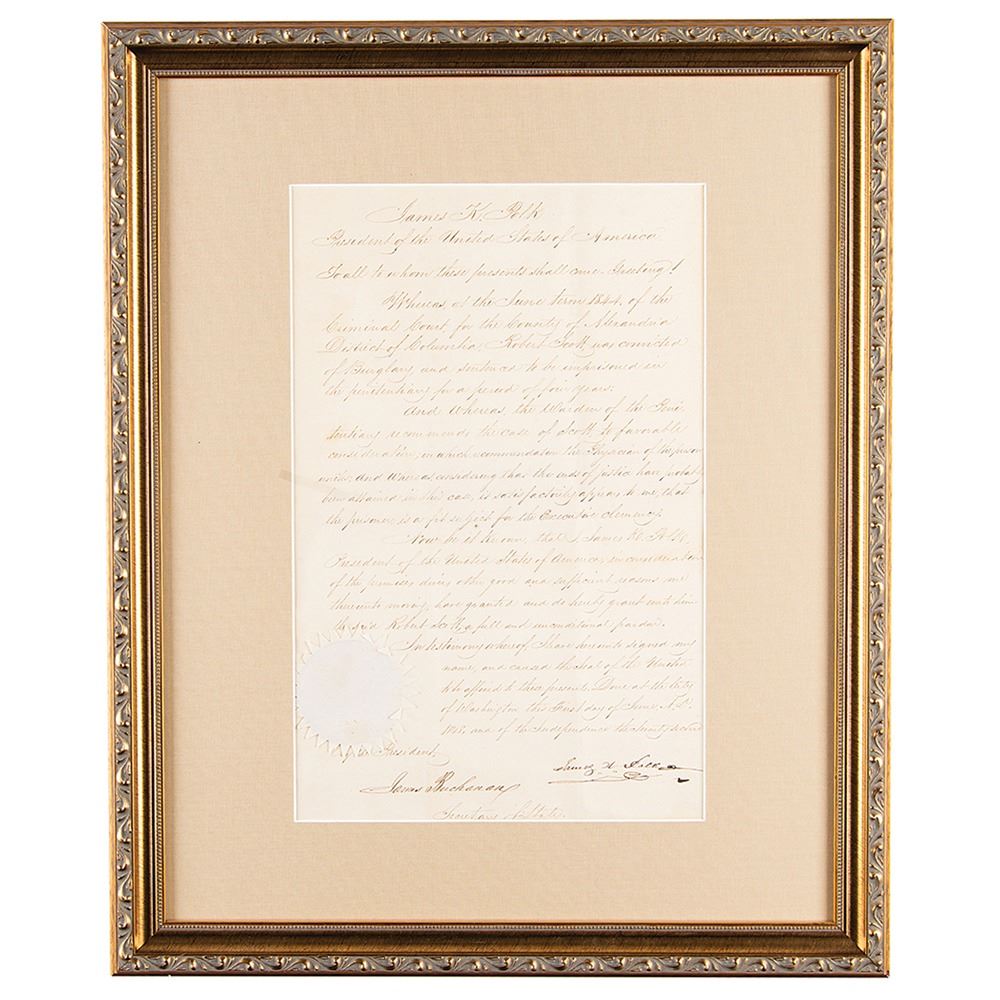 James K. Polk
President of the United States of America
To all to whom these presents shall come, Greeting!
Whereas, at the June term 1844, of the
Criminal Court, for the County of Alexandria
District of Columbia, Robert Scott was convicted
of Burglary, and sentenced to be imprisoned in
the penitentiary for a period of four years:
And Whereas, the Warden of the Peni
tentiary recommends the case of Scott to favorable
consideration, in which recommendation the Physician of the prison
unites; and whereas, considering that the ends of justice have probably
been attained in this case, it satisfactorily appears to me, that
the prisoner is a fit subject for the Executive clemency,
Now be it known, that I, James K. Polk,
President of the United States of America, in consideration
of the premises, divers other good and sufficient reasons me
thereunto moving, have granted and do hereby grant unto him
the said Robert Scott, a full and unconditional pardon.
In testimony whereof, I have hereunto signed my
name, and caused the Seal of the United
to be affixed to these presents. Done at the City
of Washington, this First day of June, A.D.
and of the Independence the Seventy second
By the President,
James K. Polk
James Buchanan
Secretary of State.